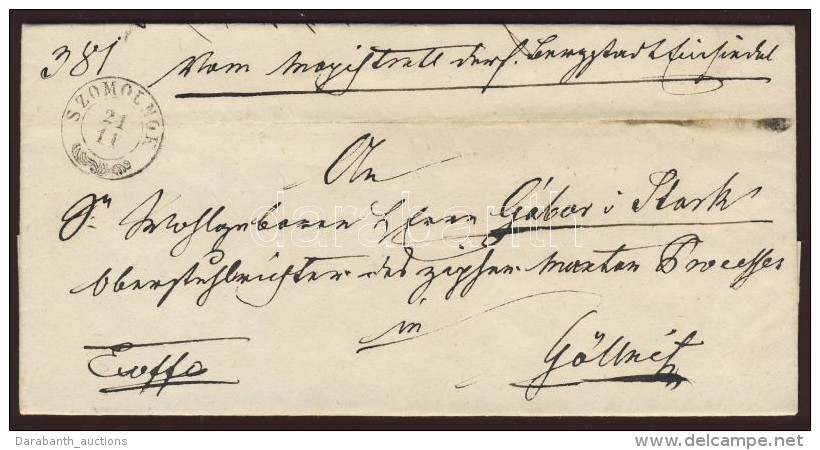 381 Vom Magistrate der k. Bergstadt Einsiedel
SZOMOLNOK
21
11
An
Sr Wohlgeboren Herrn Gábor v Stark
darabanth
Oberstuhlrichter des Zipser Processes
in
Göllnitz
Exoffo
Darabanth_auctions
delcampe.net